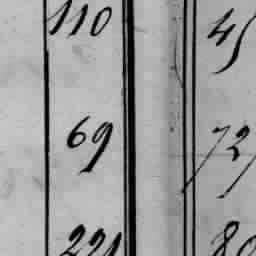 110 45
69 73
221 80